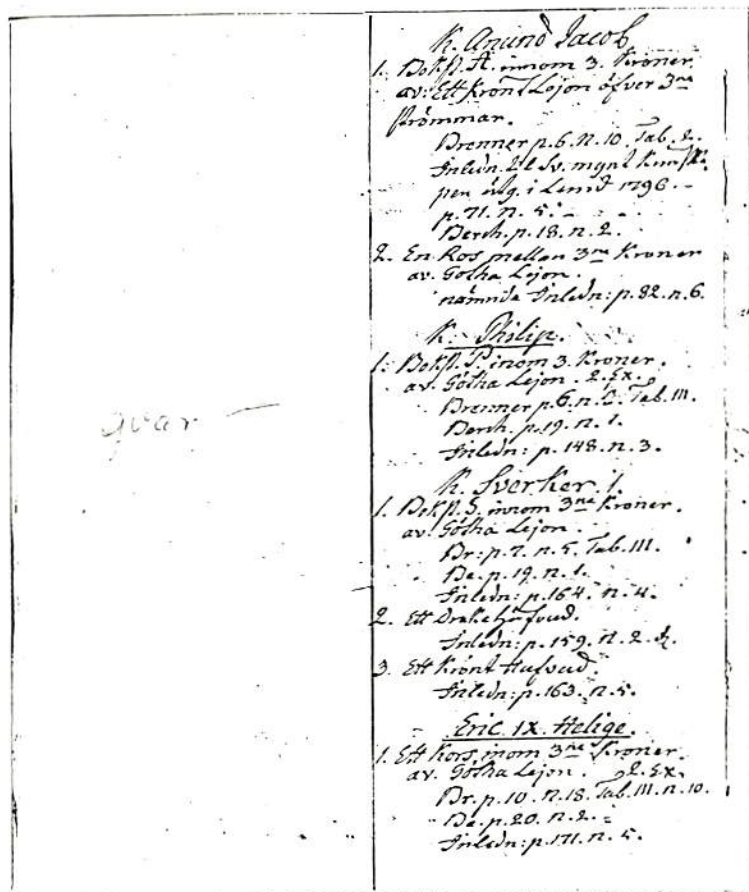 K. Anund Jacob
1. Bokst. A. innom 3. Kroner.
av: Ett Krönt Lejon öfver 3ne
strömmar.
Brenner p. 6. N. 10. Tab. 2.
Inledn. til Sv. mynt Kunska
pen utg. i Lund 1796.
p. 71. n. 5.
Berch. p. 18. n. 2.
2. En Ros mellan 3ne Kroner
av. Götha Lejon.
nämnda Inledn: p. 82. n. 6.
K. Philip.
1. Bokst. P. innom 3. Kroner.
av. Götha Lejon. 2. Ex.
Brenner p. 6. n. Tab. III.
Berch. p. 19. n. 1.
Inledn: p. 148. n. 3.
K. Sverker. 1.
1. Bokst. S. innom 3ne Kroner.
av. Götha Lejon.
Br: p. 7. n. 5. Tab. III.
Be. p. 19. n. 1.
Inledn: p. 164. n. 4.
2. Ett Drakehufvud.
Inledn: p. 159. n. 2.
3. Ett Krönt Hufvud.
Inledn: p. 163. n. 5.
Eric IX. Helige.
1. Ett Kors, inom 3ne Kroner.
av. Götha Lejon. 2. Ex.
Br. p. 10. n. 18. Tab. III. n. 10.
Be. p. 20. n. 2.
Inledn: p. 171. n. 5.
qvar —